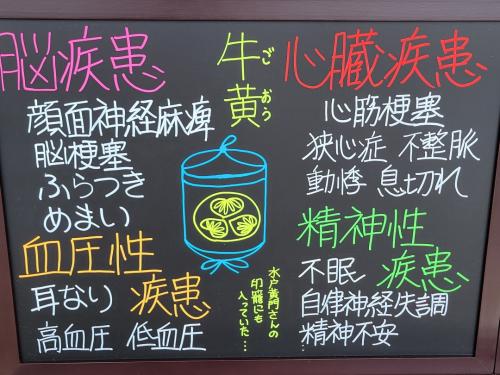 脳疾患
顔面神経麻痺
脳梗塞
ふらつき
めまい
血圧性
疾患
耳なり
高血圧 低血圧
牛黄
ごおう
水戸黄門さんの
印籠にも
入っていた…
心臓疾患
心筋梗塞
狭心症 不整脈
動悸 息切れ
精神性
疾患
不眠
自律神経失調
精神不安